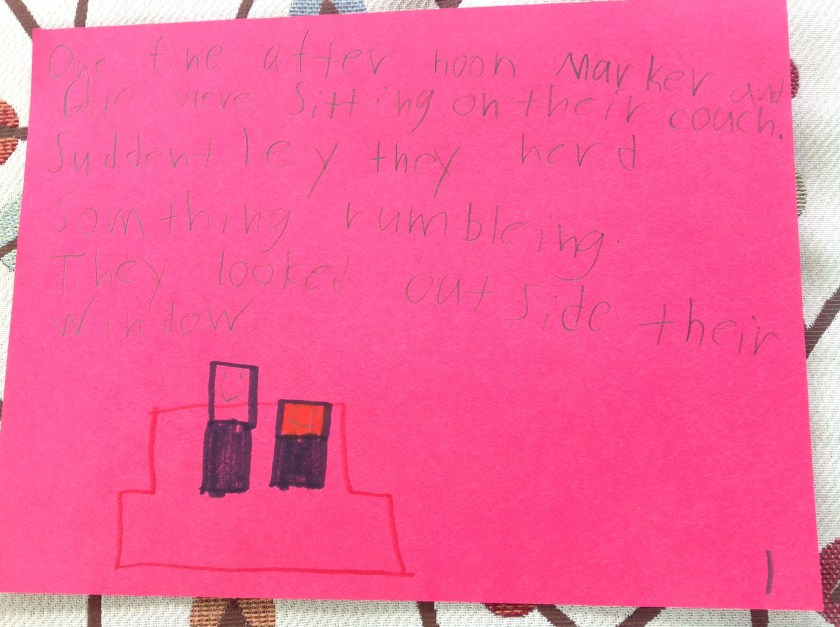 One fine after noon Marker and
Glue were Sitting on their couch.
Suddentley they herd
Somthing rumbleing.
They looked out side their
window
1